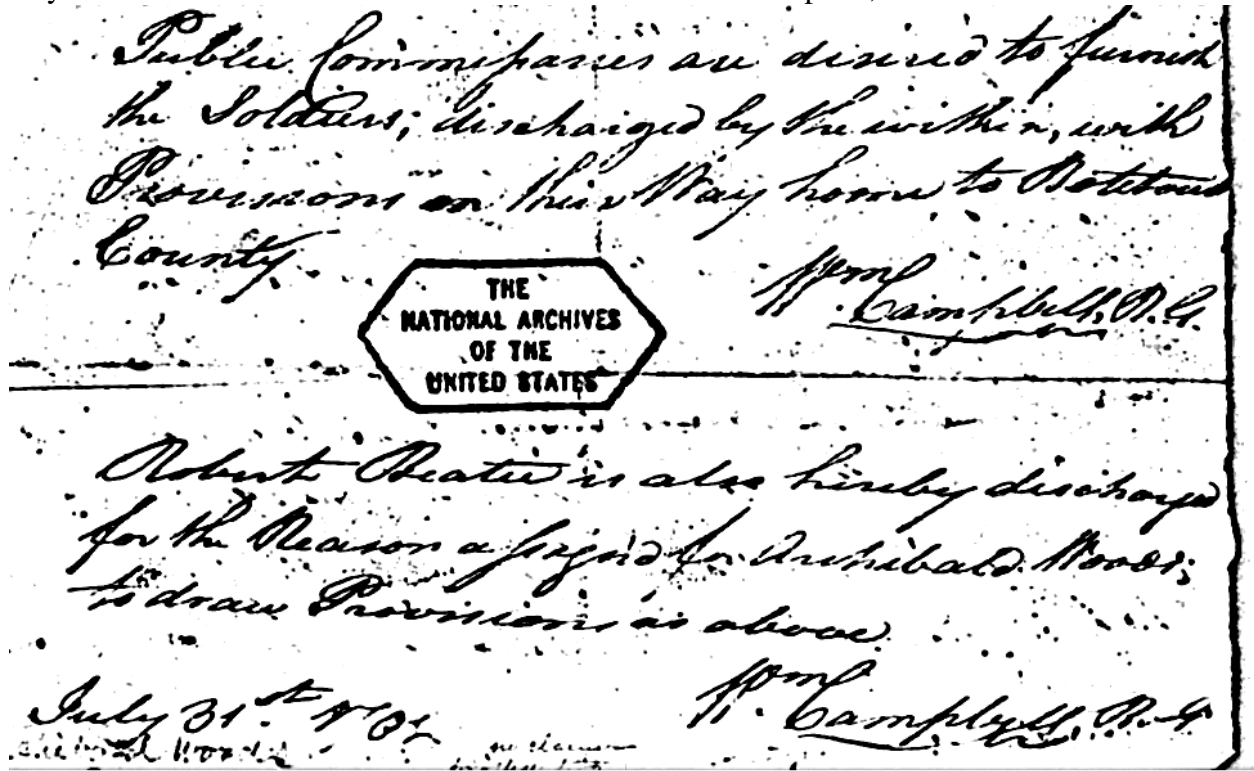 Public Commissaries are desired to furnish
the Soldiers; discharged by the within, with
Provisions on their Way home to Botetourt
County.
Wm. Campbell. B. G.
THE
NATIONAL ARCHIVES
OF THE
UNITED STATES
Robert Beatie is also hereby discharged
for the Reason assigned for Archibald Woods;
to draw Provisions as above.
July 31st.
Wm. Campbell, B. G.
Woods